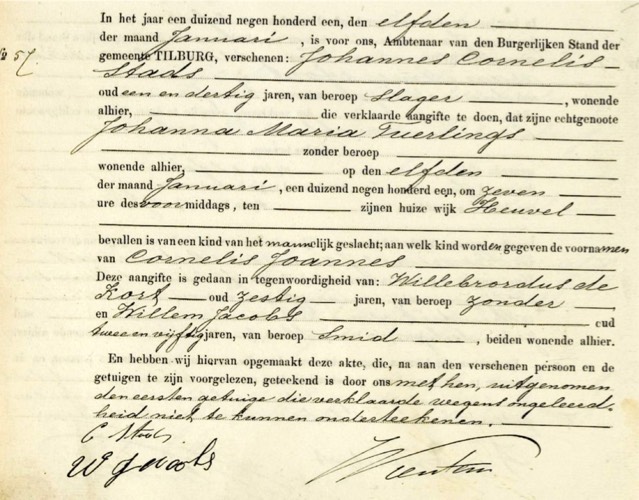 In het jaar een duizend negen honderd een, den elfden
der maand Januari, is voor ons, Ambtenaar van den Burgerlijken Stand der
№ 57 gemeente TILBURG, verschenen: Johannes Cornelis
Stads
oud een en dertig jaren, van beroep slager, wonende
alhier, die verklaarde aangifte te doen, dat zijne echtgenoote
Johanna Maria Tuerlings
zonder beroep
wonende alhier, op den elfden
der maand Januari, een duizend negen honderd een, om zeven
ure des voormiddags, ten zijnen huize wijk Heuvel
bevallen is van een kind van het mannelijk geslacht; aan welk kind worden gegeven de voornamen
van Cornelis Joannes
Deze aangifte is gedaan in tegenwoordigheid van: Willebrordus de
Kort oud zestig jaren, van beroep zonder
en Willem Jacobs oud
twee en vijftig jaren, van beroep smid, beiden wonende alhier.
En hebben wij hiervan opgemaakt deze akte, die, na aan den verschenen persoon en de
getuigen te zijn voorgelezen, geteekend is door ons met hen, uitgenomen
den eersten getuige die verklaarde wegens ongeleerd-
heid niet te kunnen onderteekenen.
C Stads
W Jacobs